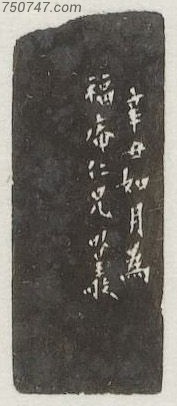 750747.com
辛丑如月為
福庵仁兄